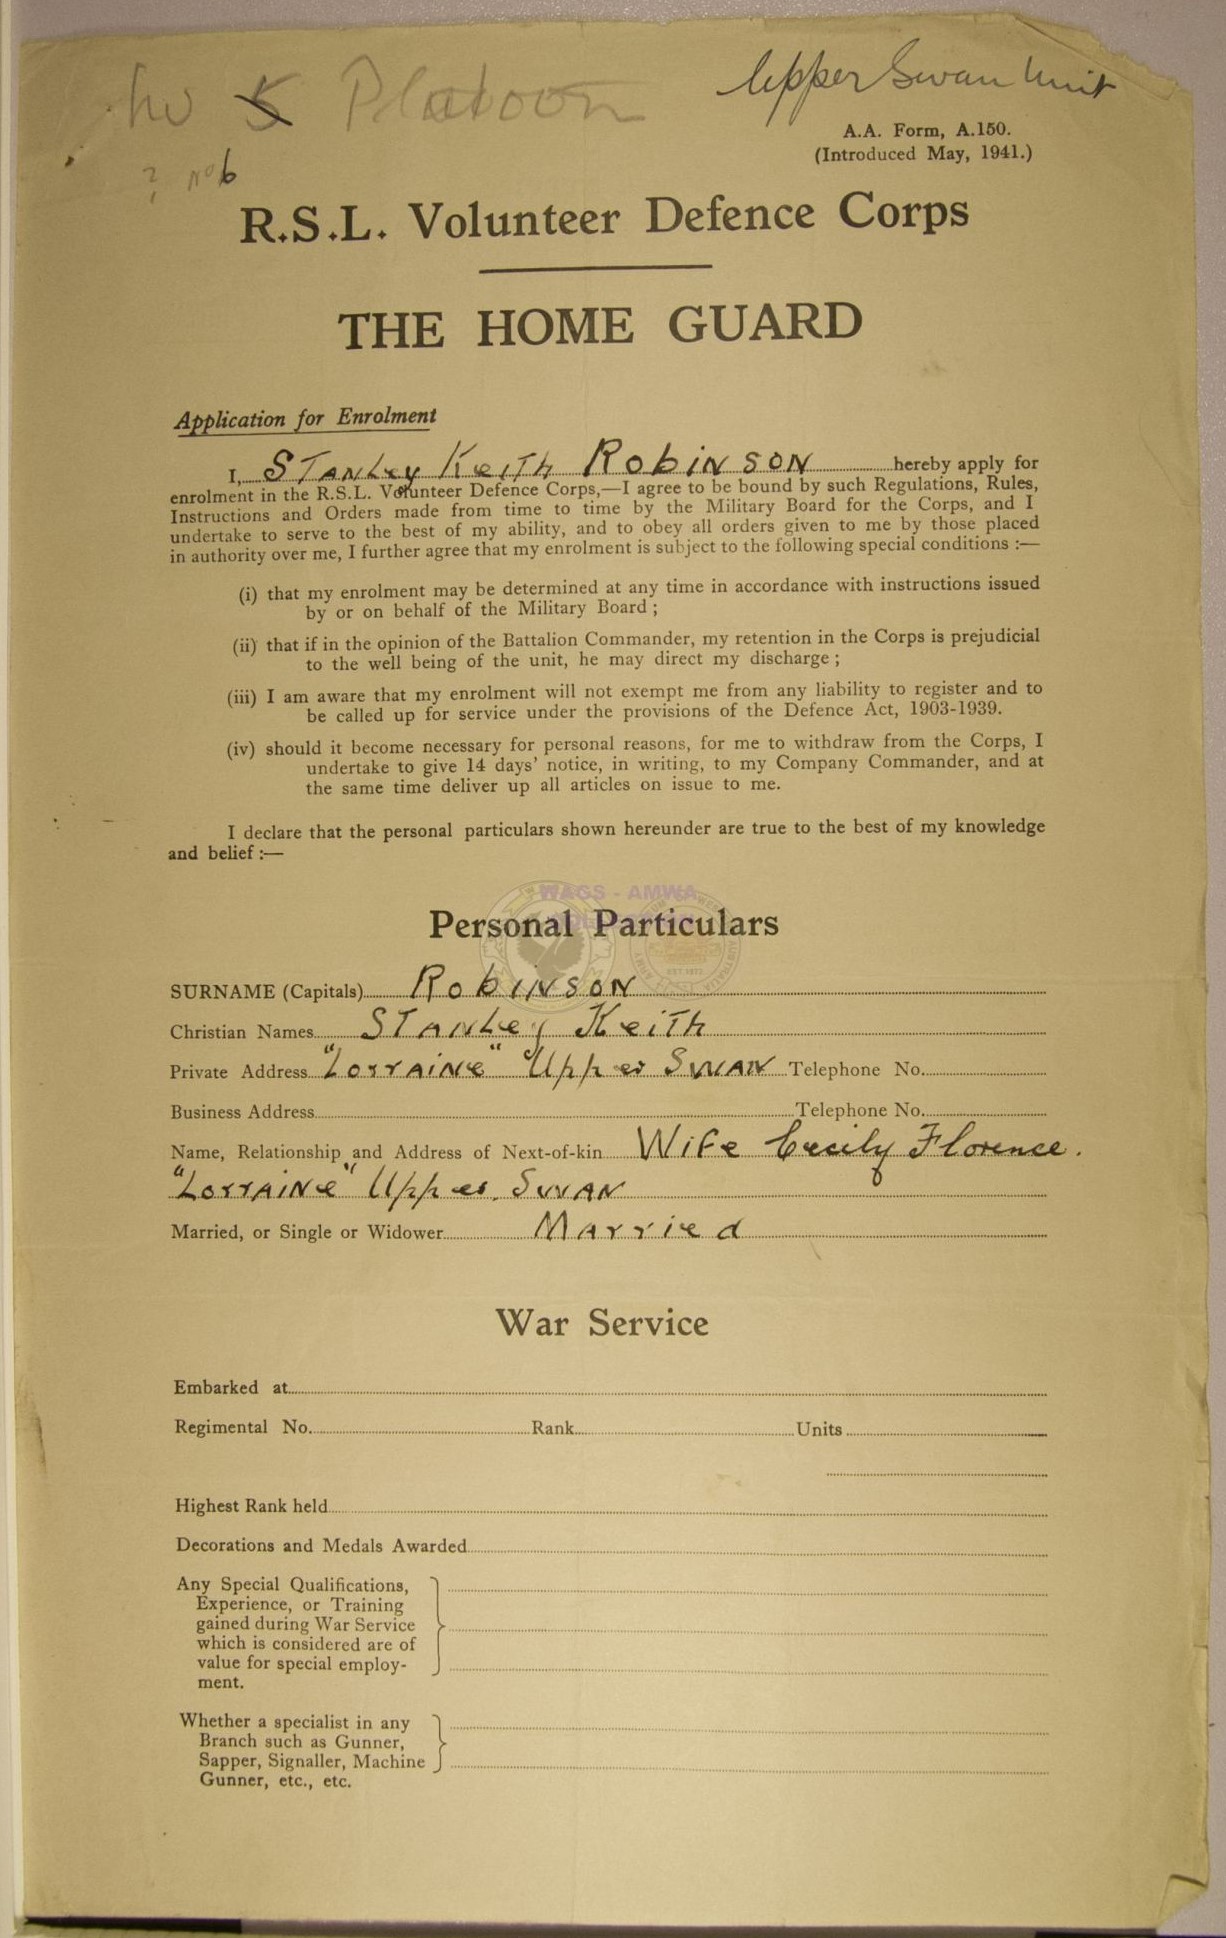 No 5 Platoon
Upper Swan Unit
? No 6
A.A. Form, A.150.
(Introduced May, 1941.)
R.S.L. Volunteer Defence Corps
THE HOME GUARD
Application for Enrolment
I, STANLey KeITh RobiNSON hereby apply for
enrolment in the R.S.L. Volunteer Defence Corps,—I agree to be bound by such Regulations, Rules,
Instructions and Orders made from time to time by the Military Board for the Corps, and I
undertake to serve to the best of my ability, and to obey all orders given to me by those placed
in authority over me, I further agree that my enrolment is subject to the following special conditions :—
(i) that my enrolment may be determined at any time in accordance with instructions issued
by or on behalf of the Military Board ;
(ii) that if in the opinion of the Battalion Commander, my retention in the Corps is prejudicial
to the well being of the unit, he may direct my discharge ;
(iii) I am aware that my enrolment will not exempt me from any liability to register and to
be called up for service under the provisions of the Defence Act, 1903-1939.
(iv) should it become necessary for personal reasons, for me to withdraw from the Corps, I
undertake to give 14 days' notice, in writing, to my Company Commander, and at
the same time deliver up all articles on issue to me.
I declare that the personal particulars shown hereunder are true to the best of my knowledge
and belief :—
WAGS - AMWA
Personal Particulars
SURNAME (Capitals) RobiNSON
Christian Names STANLey KeiTh
Private Address "LorrAiNe" Upper SWAN Telephone No.
Business Address Telephone No.
Name, Relationship and Address of Next-of-kin Wife Cecily Florence.
"LorrAiNe" Upper SWAN
Married, or Single or Widower Married
War Service
Embarked at
Regimental No. Rank Units
Highest Rank held
Decorations and Medals Awarded
Any Special Qualifications,
Experience, or Training
gained during War Service
which is considered are of
value for special employ-
ment.
Whether a specialist in any
Branch such as Gunner,
Sapper, Signaller, Machine
Gunner, etc., etc.